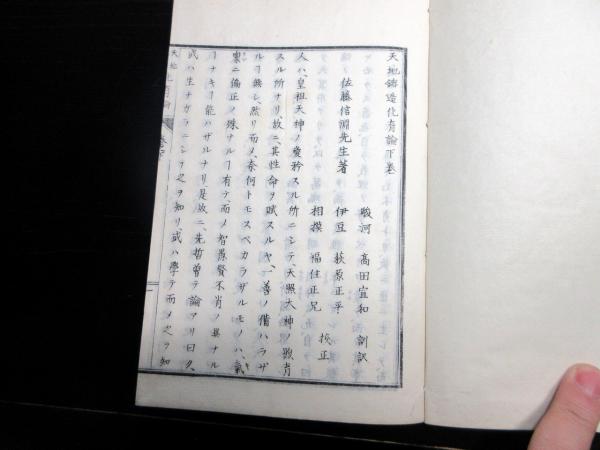 天地鎔造化育論下卷
佐藤信淵先生著
駿河 高田宜和 訓訳
伊豆 萩原正平
相摸 福住正兄 校正
人ハ、皇祖天神ノ愛矜スル所ニシテ、天照大神ノ勠育
スル所ナリ、故ニ、其性命ヲ賦スルヤ、一善ノ備ハラザ
ルヿ無シ、然リ而メ、奈何トモスベカラザルモノハ、氣
稟ニ偏正ノ殊ナルヿ有テ、而メ智愚賢不肖ノ異ナル
ヿナキヿ能ハザルナリ、是故ニ、先哲曽テ論アリ曰ク、
或ハ生ナガラニシテ之ヲ知リ、或ハ學テ而メ之ヲ知
天地 卷下